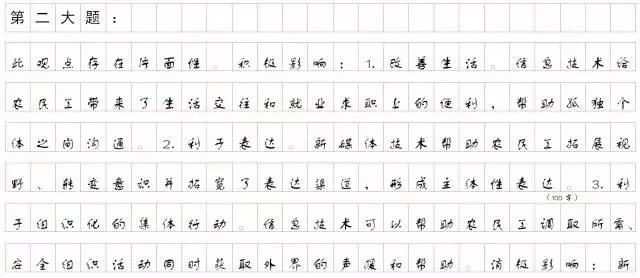 第二大题：
此观点存在片面性。积极影响：1.改善生活。信息技术给
农民工带来了生活交往和就业求职上的便利，帮助孤独个
体之间沟通。2.利于表达。新媒体技术帮助农民工拓展视
野、转变意识并拓宽了表达渠道，形成主体性表达。3.利
(100字)
于组织化的集体行动。信息技术可以帮助农民工调取所需、
安全组织活动同时获取外界的声援和帮助。消极影响：新